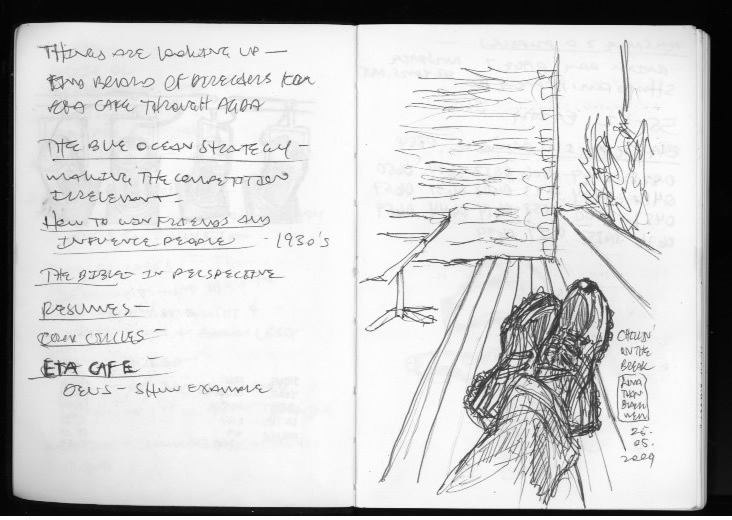 THINGS ARE LOOKING UP —
BOARD OF DIRECTORS FOR
ETA CAFE THROUGH AQDA
THE BLUE OCEAN STRATEGY —
MAKING THE COMPETITION
IRRELEVANT
HOW TO WIN FRIENDS AND
INFLUENCE PEOPLE - 1930's
THE BIBLE IN PERSPECTIVE
RESUMES —
CORN CIRCLES —
ETA CAFE —
SHOW EXAMPLE
CHILLIN'
ON THE
BREAK
25.
05.
2009